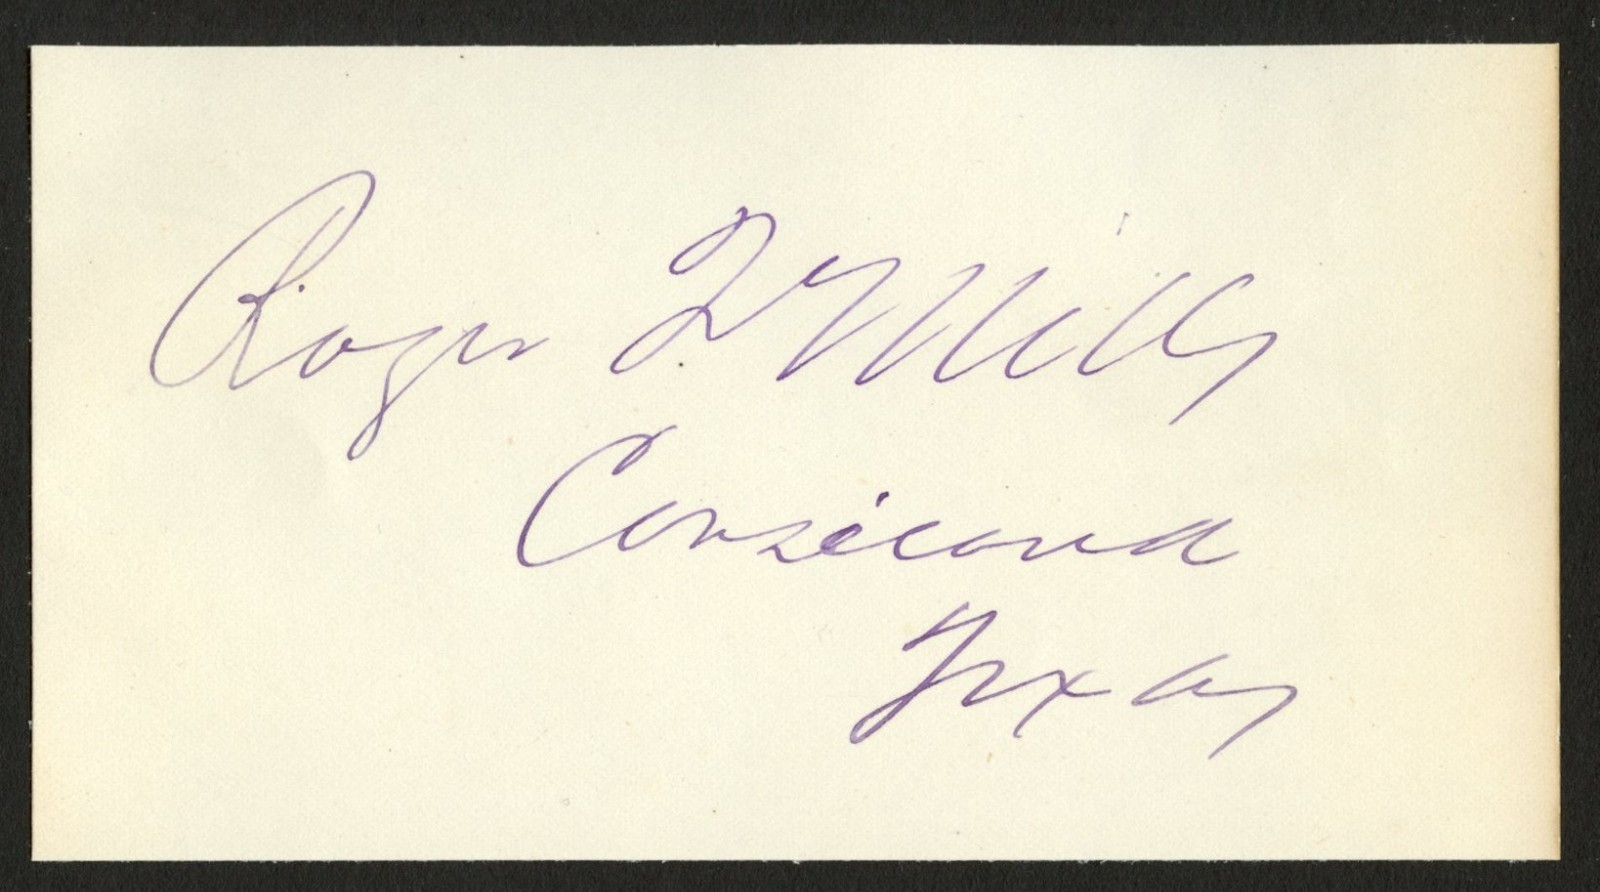 Roger Q. Mills
Corsicana
Texas